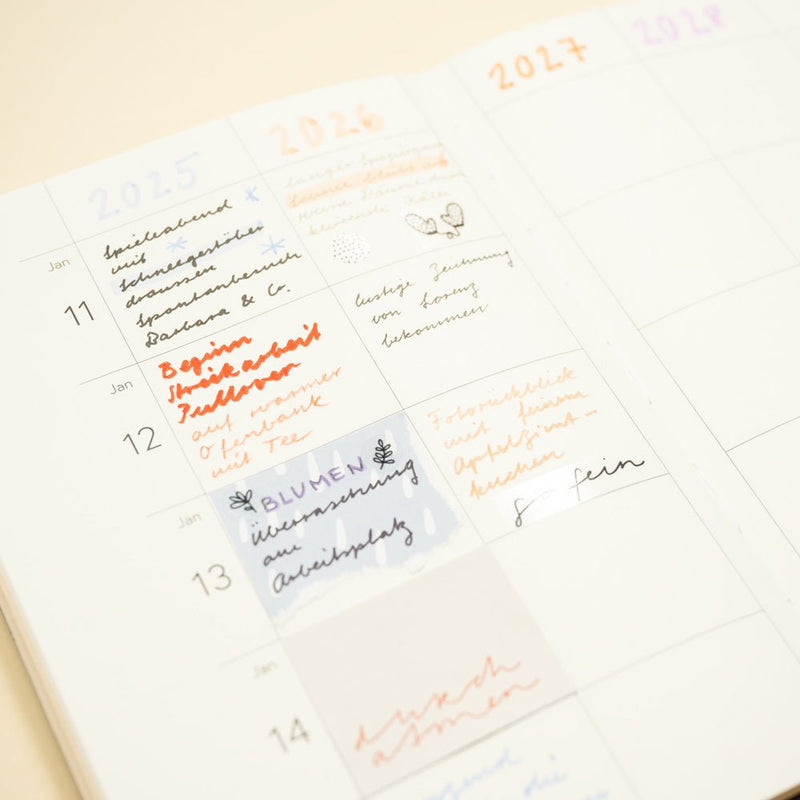 2025
2026
2027
2028
Jan
11
Spieleabend
mit
Schneegestöber
draussen
Spontanbesuch
Barbara & Co.
langer Spaziergang
Jan
12
Beginn
Strickarbeit
Pullover
auf warmer
Ofenbank
mit Tee
lustige Zeichnung
von Lorenz
bekommen
Jan
13
BLUMEN
Überraschung
am
Arbeitsplatz
Fotorückblick
mit feinem
Apfelzimt-
kuchen
so fein
Jan
14
durch
atmen
die